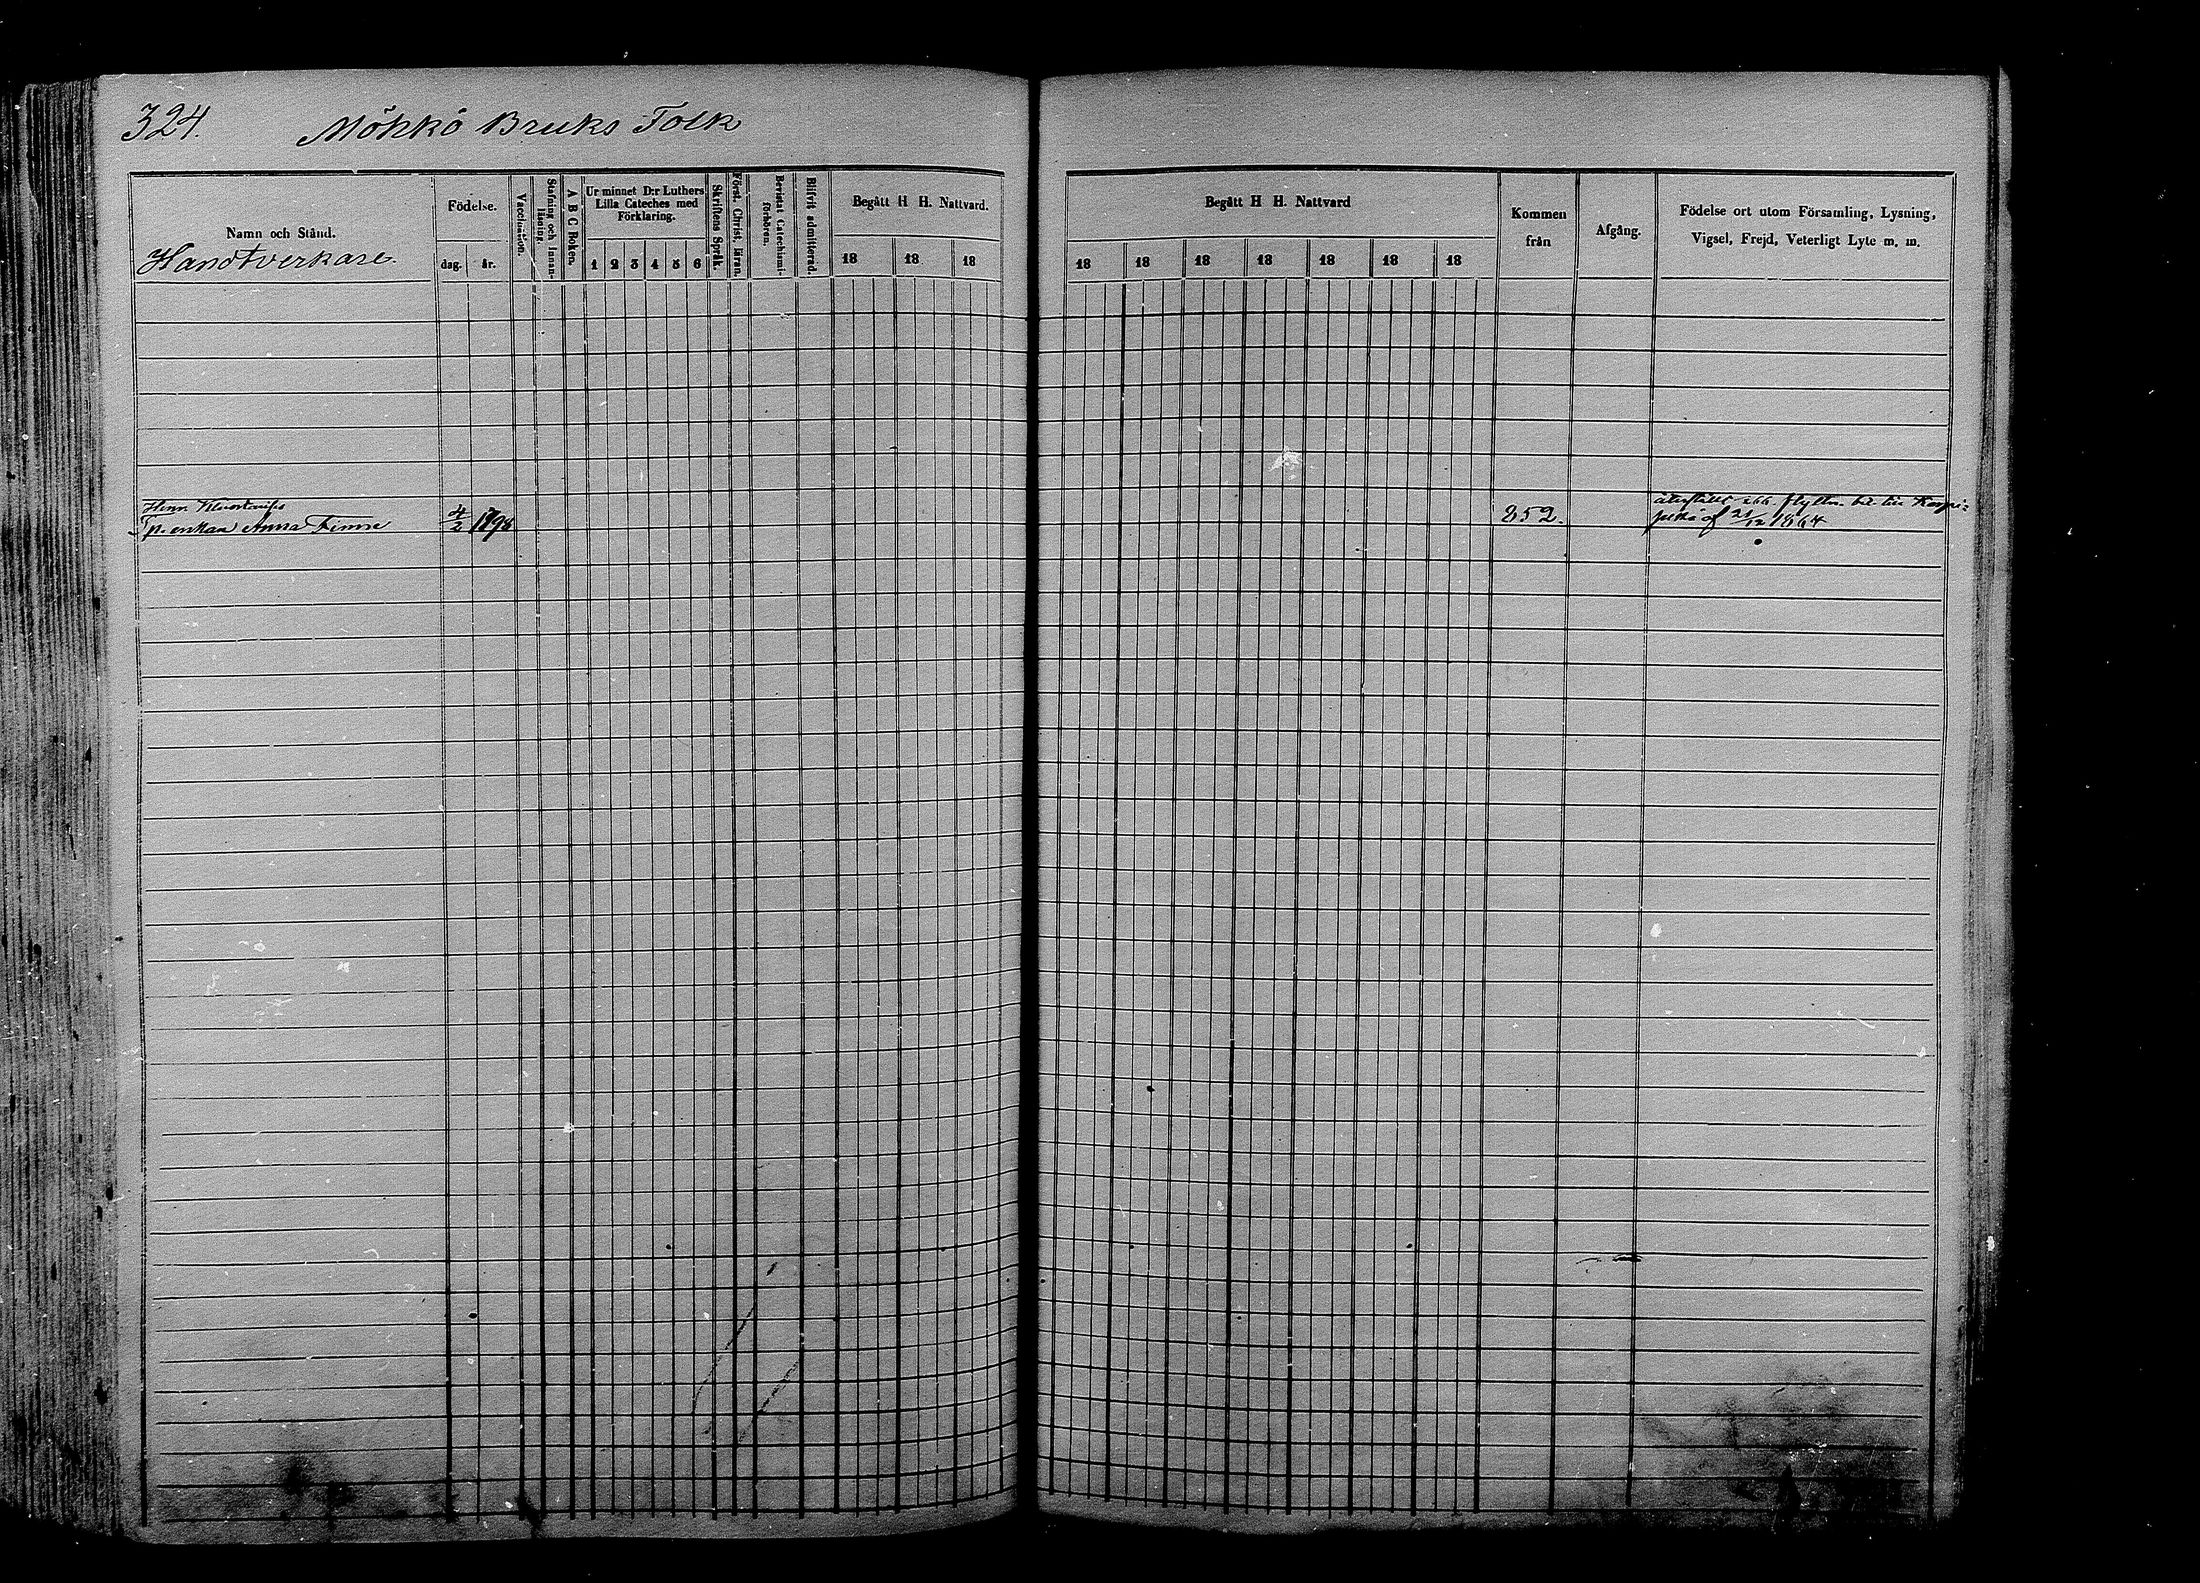 324. Möhkö Bruks Folk
Namn och Stånd.
Handtverkare.
Födelse.
dag. år.
Vaccination.
Stafning och Innan-
läsning.
A B C Boken.
Ur minnet D:r Luthers
Lilla Cateches med
Förklaring.
1 2 3 4 5 6
Skriftens Språk.
Först. Christ. läran.
Bevistat Catechismi-
förhören.
Blifvit admitterad.
Begått H H. Nattvard.
18 18 18
Begått H H. Nattvard
18 18 18 18 18 18 18
Kommen
från
Afgång.
Födelse ort utom Församling, Lysning,
Vigsel, Frejd, Veterligt Lyte m. m.
Henr.
enkan Anna Timne 4/2 852.
af 21/12 1864